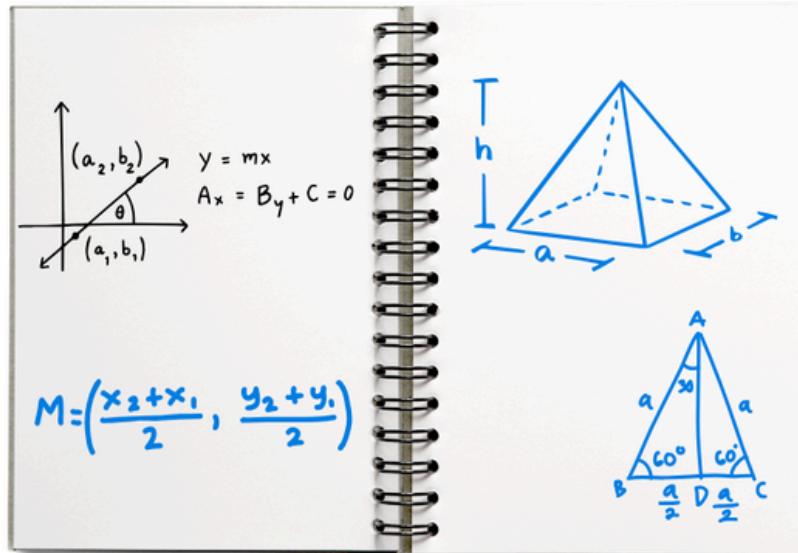 (a₂, b₂)
y = mx
Ax = By + C = 0
θ
(a₁, b₁)
M = (x₂ + x₁ / 2, y₂ + y₁ / 2)
h
a
b
A
30
a a
60° 60°
B a/2 D a/2 C